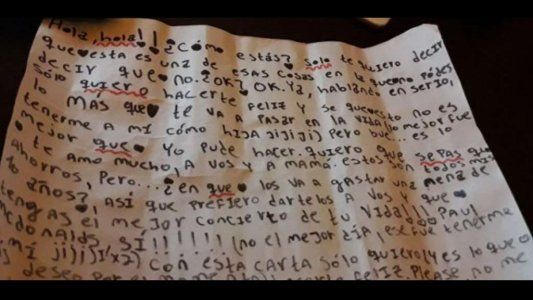 Hola, hola!! ¿Cómo estás? Solo te quiero decir
que esta es una de esas cosas en la que no podés
decir que no. ¿OK? OK. Ya, hablando en serio,
sólo quiero hacerte feliz y se que esto no es
lo MAS que te va a pasar en la vida, lo mejor fue
tenerme a mí cómo hija jijiji) Pero bue... es lo
mejor que yo pude hacer. quiero que sepas que
te amo mucho, a vos y a mamá. estos son todos mis
ahorros, pero... ¿en que los va a gastar una nena de
10 años? ASÍ que prefiero dartelos a vos y que
tengas el mejor concierto de tu vida! do Paul
mcdonalds SÍ!!!!!! (no el mejor día, ese fue tenerme
mí jijiji con esta carta sólo quiero (y es lo que
deseo por el feliz. Please no me